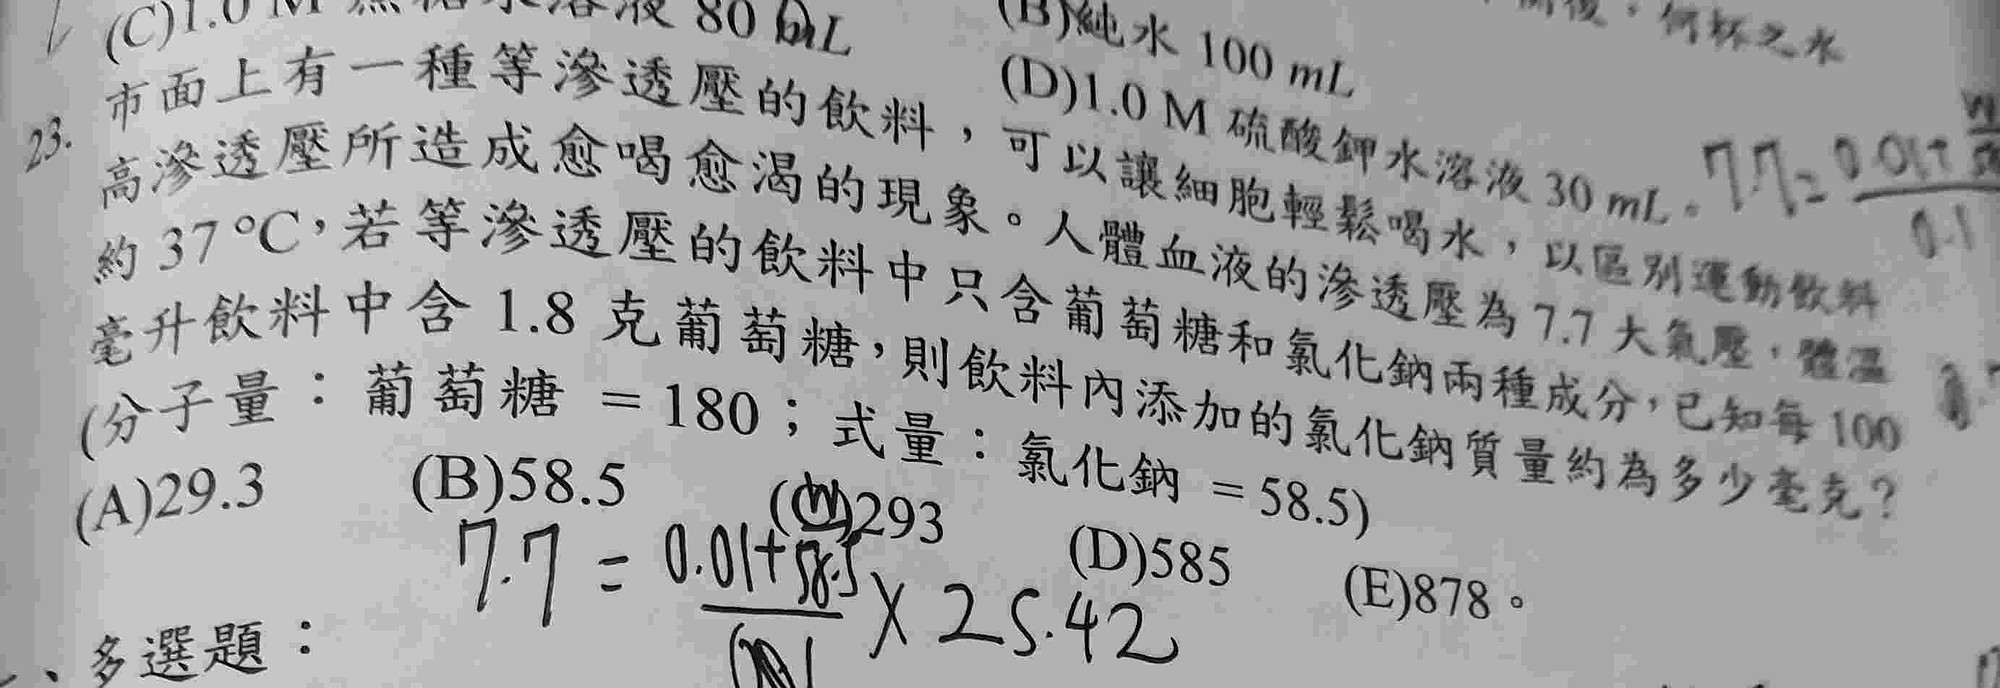 (C)1.0 M 蔗糖水溶液 80 mL
(B)純水 100 mL
何杯之水
(D)1.0 M 硫酸鉀水溶液 30 mL。
23. 市面上有一種等滲透壓的飲料，可以讓細胞輕鬆喝水，以區別運動飲料
高滲透壓所造成愈喝愈渴的現象。人體血液的滲透壓為 7.7 大氣壓，體溫
約 37 ℃，若等滲透壓的飲料中只含葡萄糖和氯化鈉兩種成分，已知每 100
毫升飲料中含 1.8 克葡萄糖，則飲料內添加的氯化鈉質量約為多少毫克？
(分子量：葡萄糖 = 180；式量：氯化鈉 = 58.5)
(A)29.3 (B)58.5 (C)293 (D)585 (E)878。
7.7 = 0.01+
0.1
7.7 = 0.01+ 58.5 × 25.42
多選題：